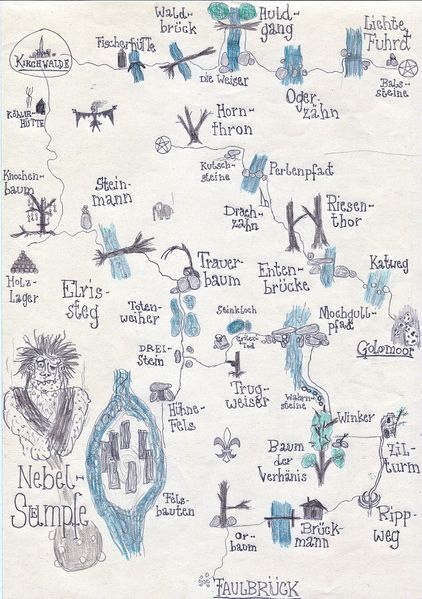 Wald-
brück
Huld-
gang
Lichte
Fuhrt
Fischerhütte
KIRCHWALDE
Die Weiser
Oger-
zähn
Bals-
steine
Köhler-
HÜTTE
Horn-
thron
Kutsch-
steine
Perlenpfad
Knochen-
baum
Stein-
mann
Drach-
zahn
Riesen-
thor
Trauer-
baum
Enten-
brücke
Katweg
Holz-
Lager
Elris-
steg
Toten-
weiher
Steinkloch
Mochgull-
pfad
GOLOMOOR
DREI-
Stein
Trug-
weiser
Hühne-
Fels
Wahrn-
steine
Winker
Baum
der
Verhänis
Zil-
turm
Nebel-
Sümpfe
Fels-
bauten
Or-
baum
Brück-
mann
Ripp-
weg
FAULBRÜCK